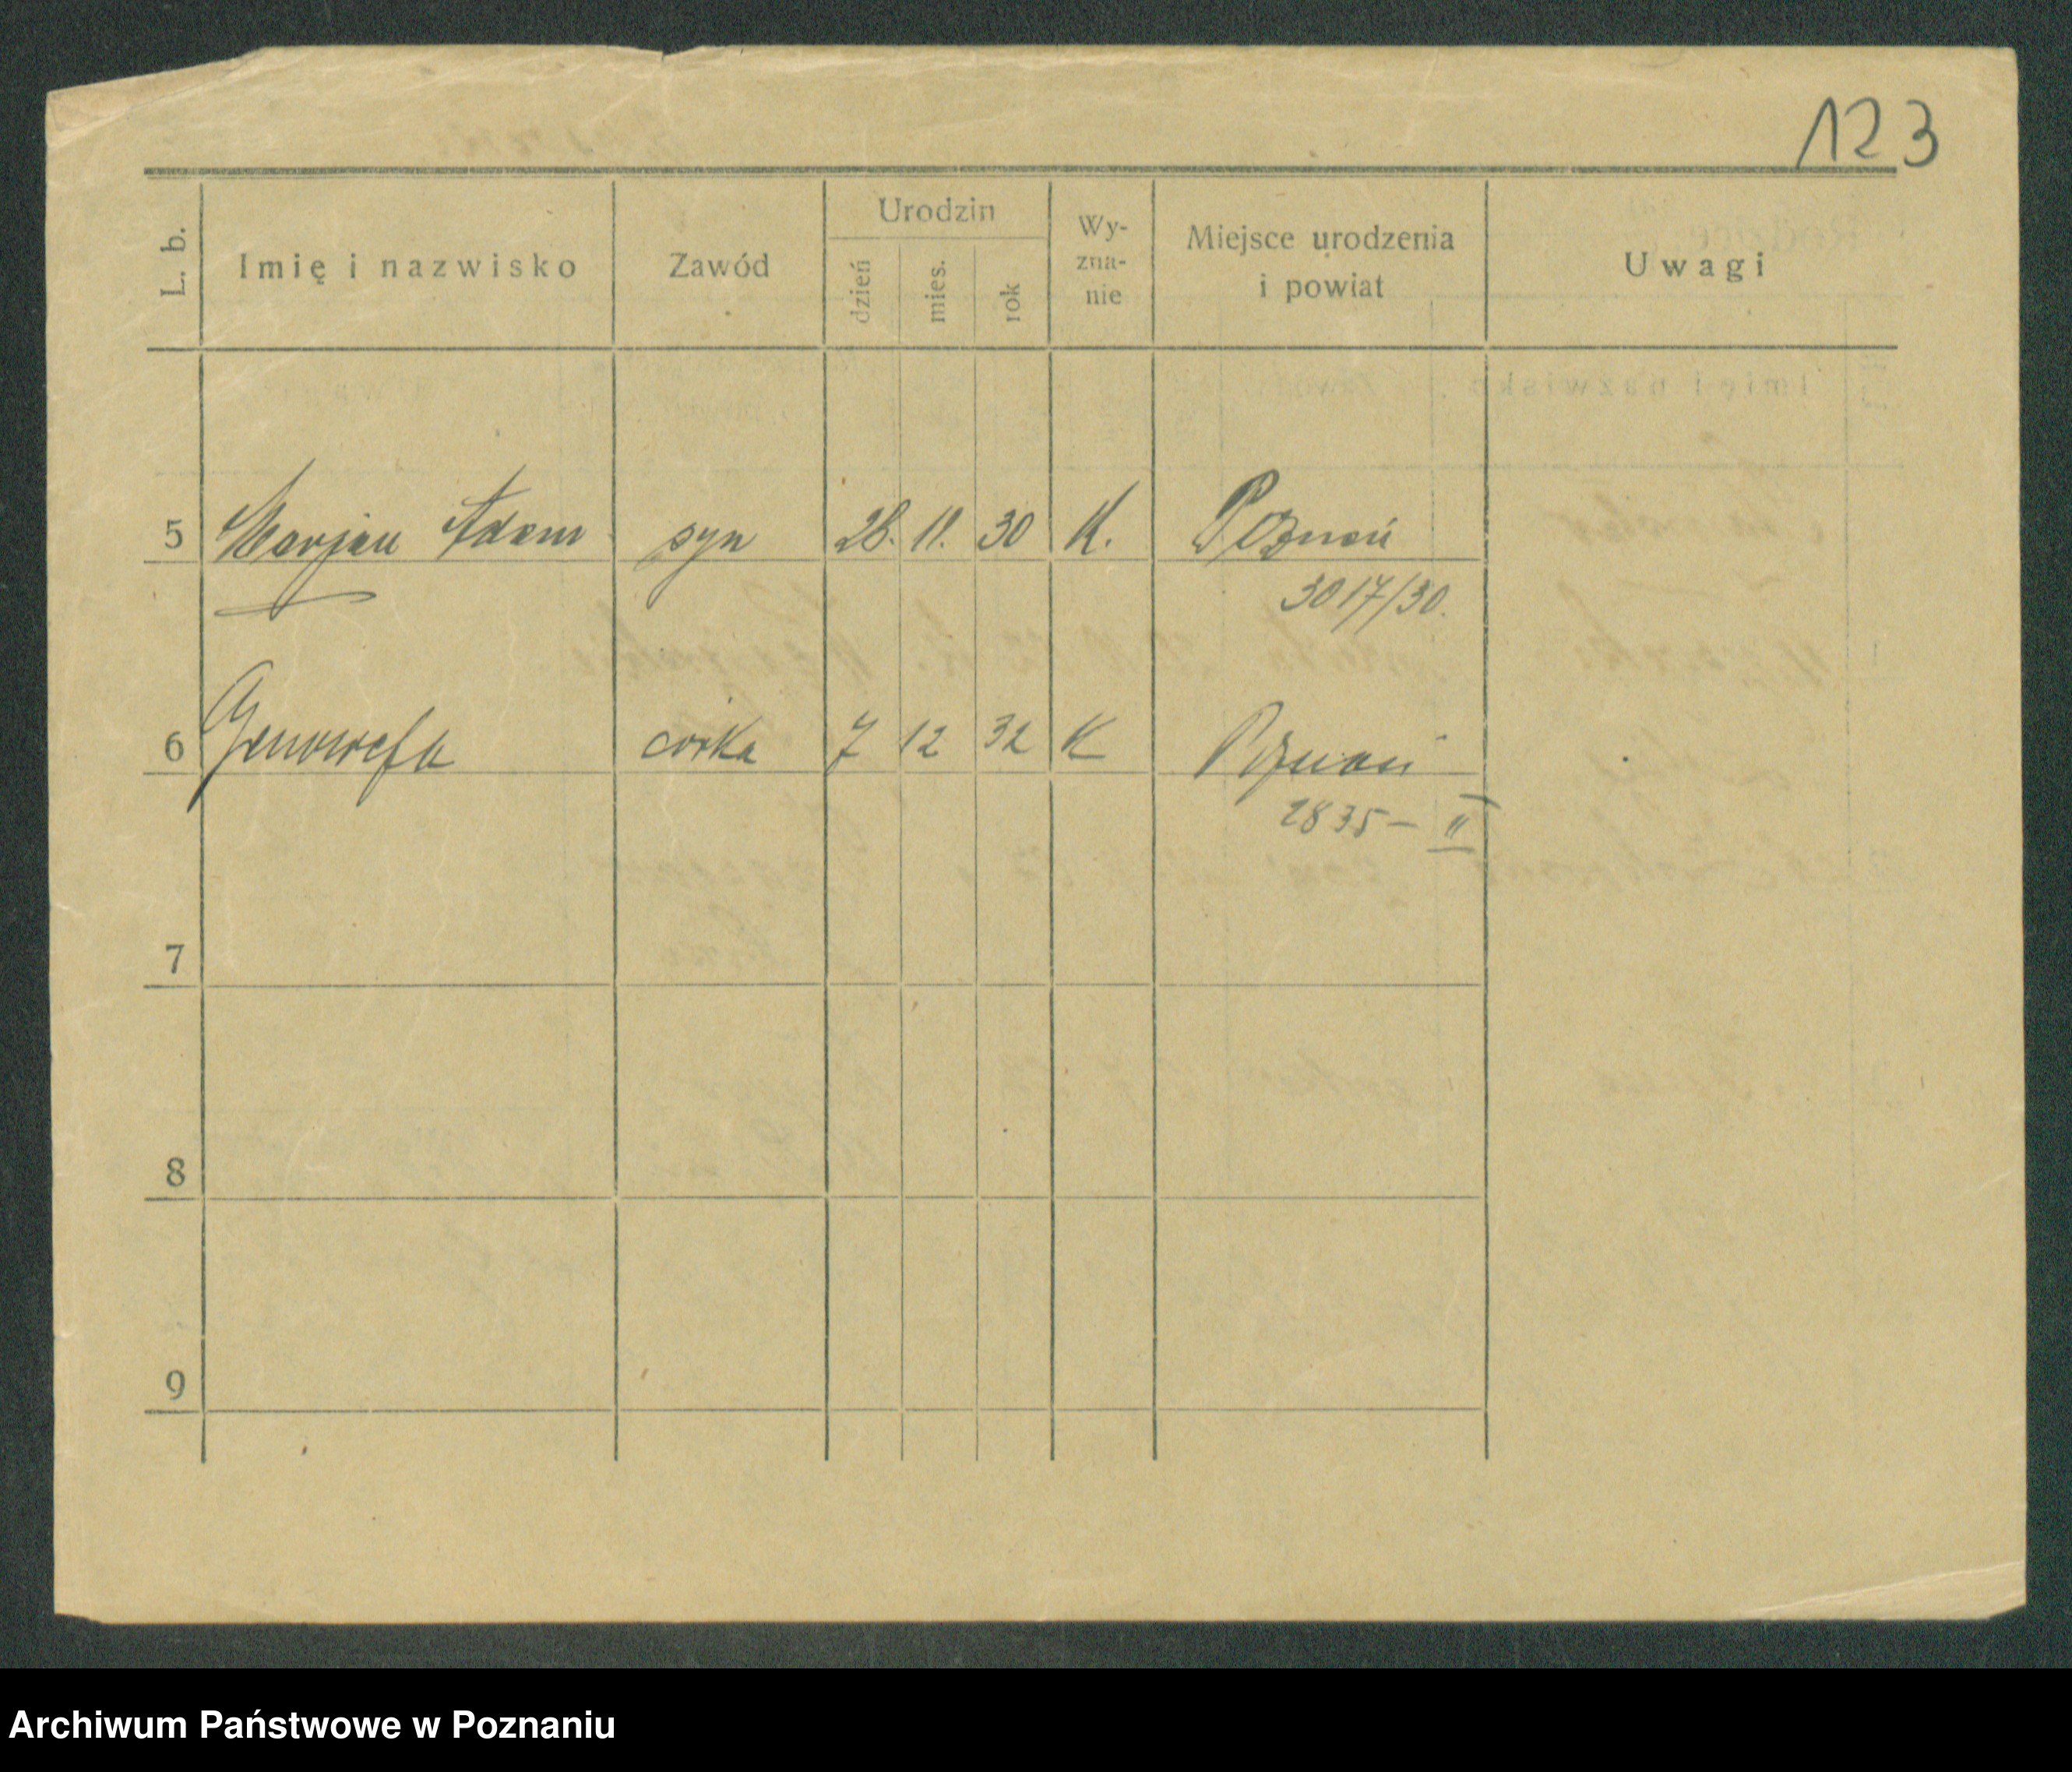 123
L. b. Imię i nazwisko Zawód Urodzin dzień mies. rok Wy-zna-nie Miejsce urodzenia i powiat Uwagi
5 Marjan Adam syn 28. 11. 30 K. Poznań
3017/30.
6 Genowefa córka 7 12 32 K Poznań
2835 — II
7
8
9
Archiwum Państwowe w Poznaniu